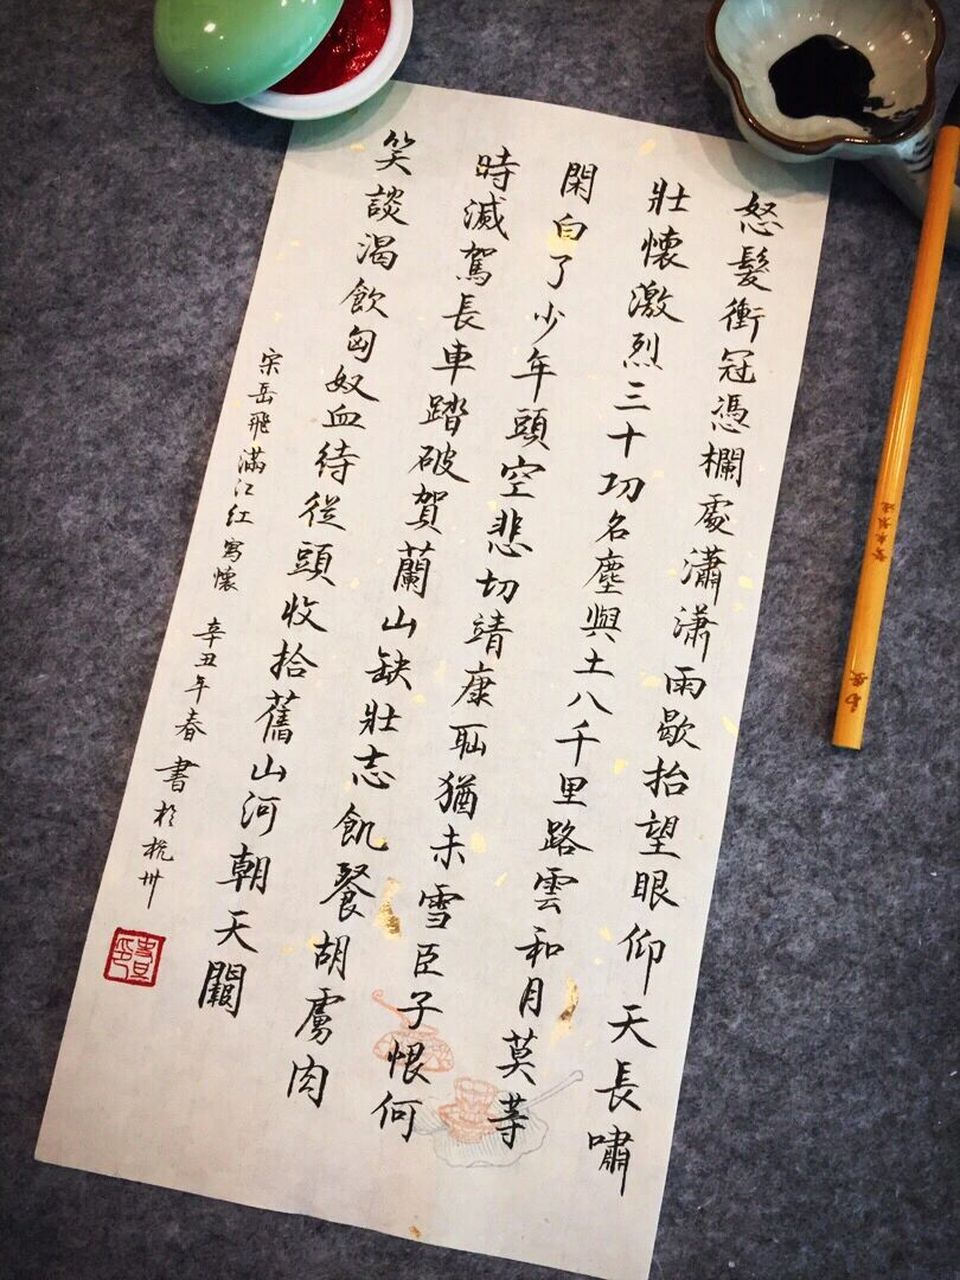 怒髮衝冠憑欄處瀟瀟雨歇抬望眼仰天長嘯
壯懷激烈三十功名塵與土八千里路雲和月莫等
閑白了少年頭空悲切靖康恥猶未雪臣子恨何
時滅駕長車踏破賀蘭山缺壯志飢餐胡虜肉
笑談渴飲匈奴血待從頭收拾舊山河朝天闕
宋岳飛滿江紅寫懷 辛丑年春書於杭州